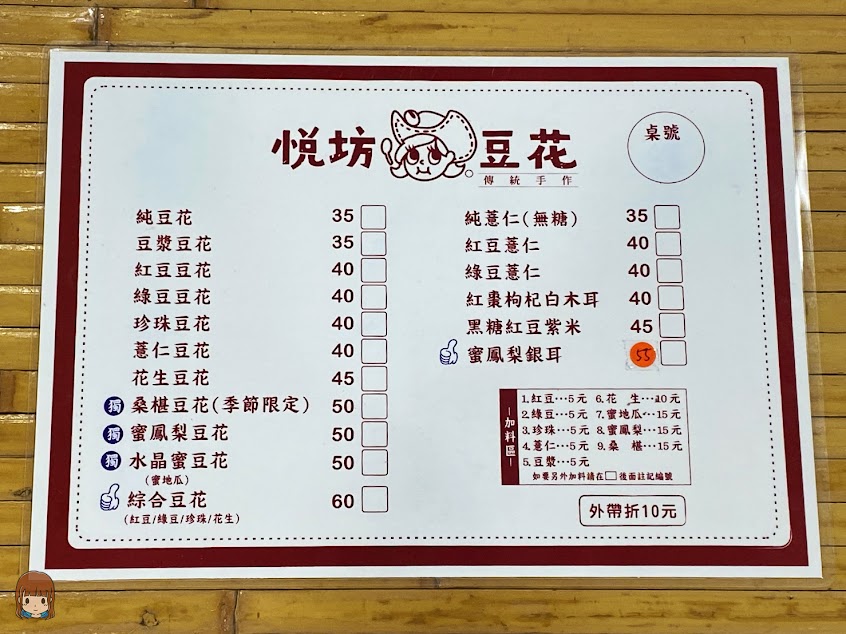 悦坊豆花
傳統手作
桌號
純豆花 35
豆漿豆花 35
紅豆豆花 40
綠豆豆花 40
珍珠豆花 40
薏仁豆花 40
花生豆花 45
獨 桑椹豆花(季節限定) 50
獨 蜜鳳梨豆花 50
獨 水晶蜜豆花 50
(蜜地瓜)
綜合豆花 60
(紅豆/綠豆/珍珠/花生)
純薏仁(無糖) 35
紅豆薏仁 40
綠豆薏仁 40
紅棗枸杞白木耳 40
黑糖紅豆紫米 45
蜜鳳梨銀耳 55
加料區
1.紅豆…5元 6.花 生…10元
2.綠豆…5元 7.蜜地瓜…15元
3.珍珠…5元 8.蜜鳳梨…15元
4.薏仁…5元 9.桑 椹…15元
5.豆漿…5元
如要另外加料請在□後面註記編號
外帶折10元